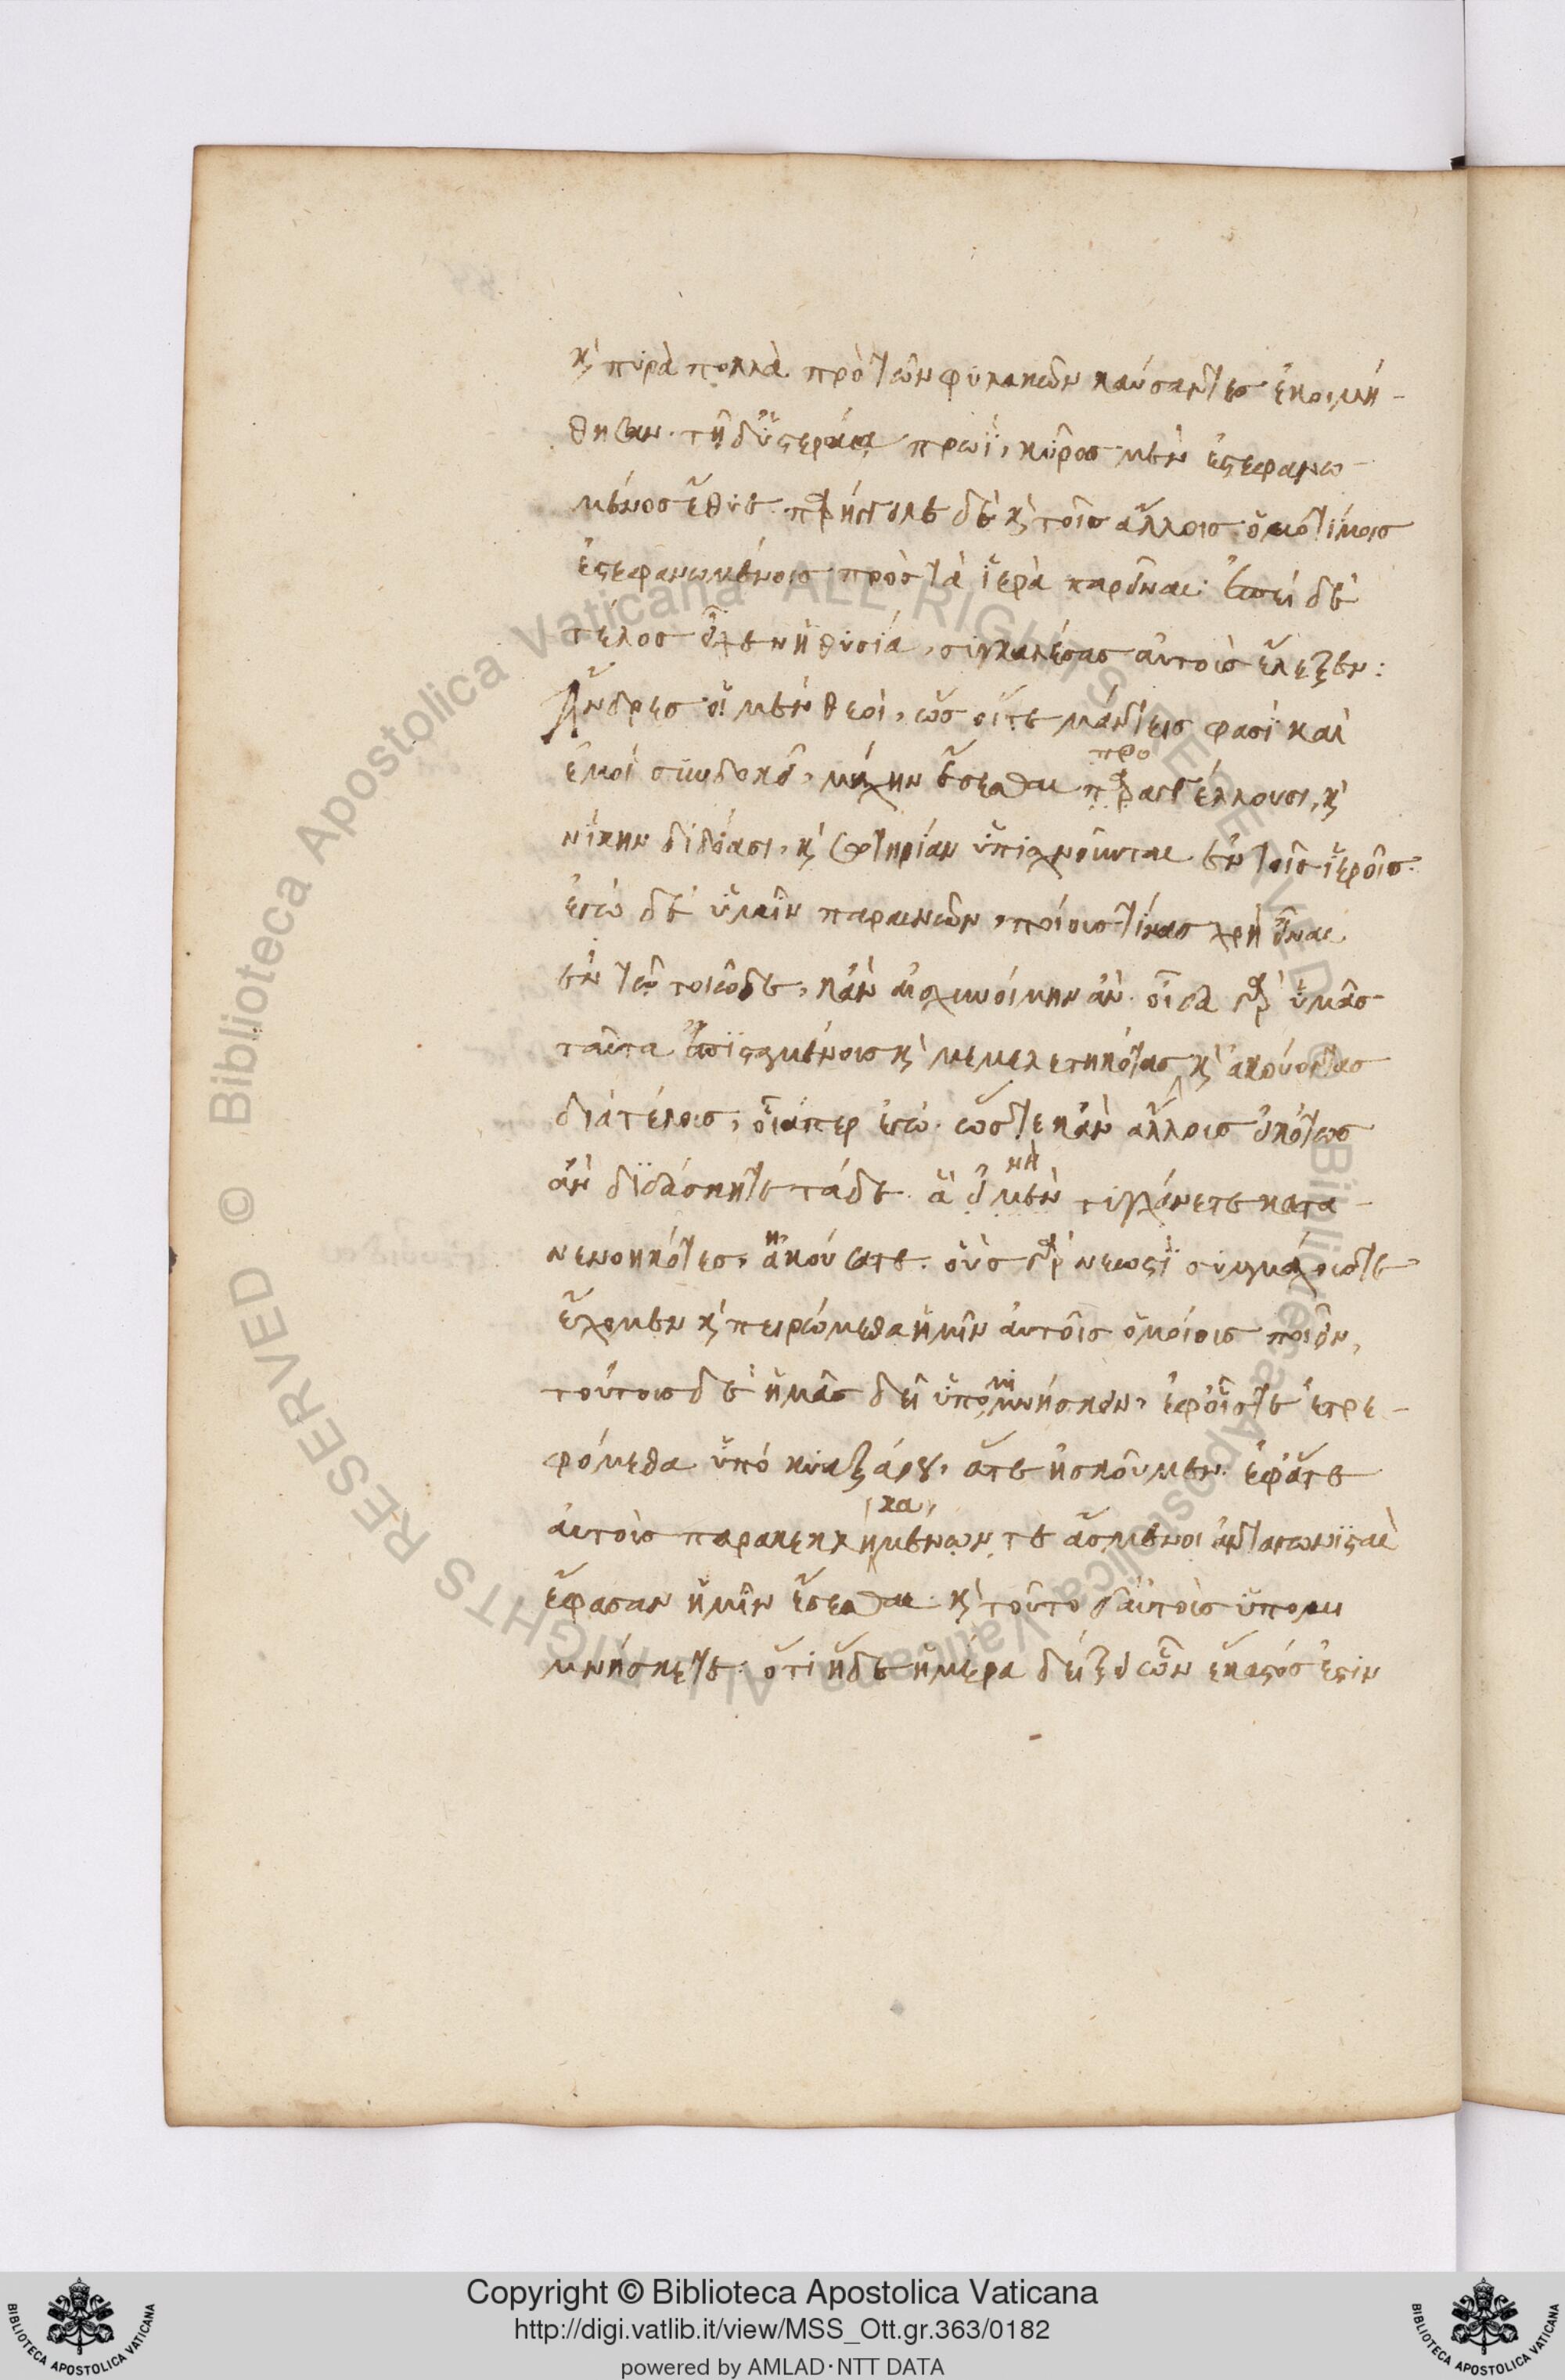 καὶ πυρὰ πολλὰ πρὸ τῶν φυλακῶν καύσαντες ἐκοιμή-
θησαν. τῇ δ' ὑστεραία πρωΐ, κῦρος μὲν ἐστεφανω-
μένος ἔθυε. παρήγγειλε δὲ καὶ τοῖς ἄλλοις ὁμοτίμοις
ἐστεφανωμένοις πρὸς τὰ ἱερὰ παρεῖναι. ἐπεὶ δὲ
τέλος εἶχεν ἡ θυσία, συγκαλέσας αὐτοὺς ἔλεξεν:
Ἄνδρες οἱ μὲν θεοὶ, ὡς οἵτε μάντεις φασὶ καὶ
προ
ἐμοὶ συνδοκεῖ, μάχην ἔσεσθαι παραγγέλλουσι, καὶ
νίκην διδόασι, καὶ σωτηρίαν ὑπισχνοῦνται ἐν τοῖς ἱεροῖς.
ἐγὼ δὲ ὑμῖν παραινῶν, ποίους τινας χρὴ εἶναι
ἐν τῷ τοιῷδε, κἂν αἰσχυνοίμην ἂν. οἶδα γὰρ ὑμᾶς
ταῦτα ἐπισταμένους καὶ μεμελετηκότας καὶ ἀκούοντας
διὰ τέλους, οἷάπερ ἐγὼ. ὥστε κἂν ἄλλους εἰκότως
μὴ
ἂν διδάσκητε τάδε. ἃ εἰ μὲν τυγχάνετε κατα-
νενοηκότες, ἀκούσατε. οὓς γὰρ νεωστὶ συμμάχους τε
ἔχομεν καὶ πειρώμεθα ἡμῖν αὐτοῖς ὁμοίους ποιεῖν,
τούτους δὲ ἡμᾶς δεῖ ὑπομιμνήσκειν, ἐφ' οἷς τε ἐτρε-
φόμεθα ὑπὸ κυαξάρου, ἅτε ἠσκοῦμεν. ἐφ' ἅτε
κα
αὐτοὺς παρακεκλήμένων τε ἄσμενοι ἀνταγωνισταὶ
ἔφασαν ἡμῖν ἔσεσθαι. καὶ τοῦτο δ' αὐτοὺς ὑπομι
μνήσκετε. ὅτι ἥδε ἡμέρα δείξει ὧν ἕκαστός ἐστιν
Copyright © Biblioteca Apostolica Vaticana
http://digi.vatlib.it/view/MSS_Ott.gr.363/0182
powered by AMLAD·NTT DATA